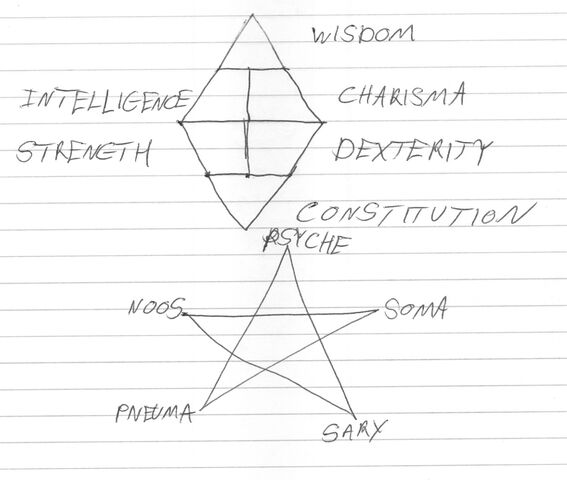 WISDOM
INTELLIGENCE CHARISMA
STRENGTH DEXTERITY
CONSTITUTION
PSYCHE
NOOS SOMA
PNEUMA
SARX